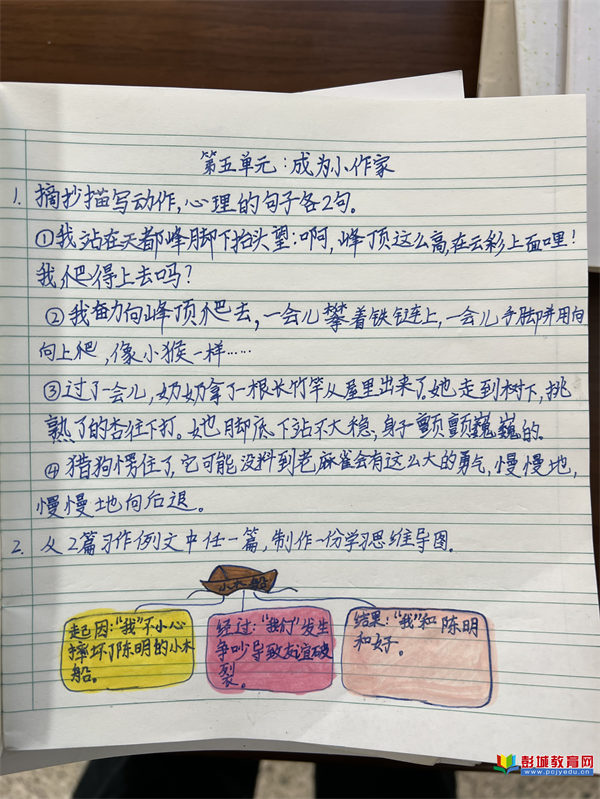 第五单元:成为小作家
1. 摘抄描写动作,心理的句子各2句。
①我站在天都峰脚下抬头望:啊,峰顶这么高,在云彩上面哩!
我爬得上去吗?
②我奋力向峰顶爬去,一会儿攀着铁链上,一会儿手脚并用向
向上爬,像小猴一样……
③过了一会儿,奶奶拿了一根长竹竿从屋里出来了。她走到树下,挑
熟了的杏往下打。她脚底下站不大稳,身子颤颤巍巍的。
④猎狗愣住了,它可能没料到老麻雀会有这么大的勇气,慢慢地,
慢慢地向后退。
2. 从2篇习作例文中任一篇,制作一份学习思维导图。
小木船
起因:“我”不小心
摔坏了陈明的小木
船。
经过:“我们”发生
争吵导致友谊破
裂。
结果:“我”和陈明
和好。
彭城教育网
www.pcjyedu.cn